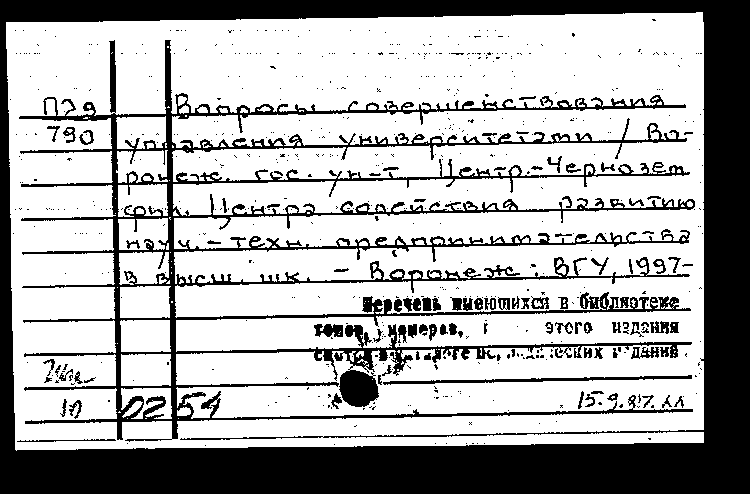 ПЭ9 Вопросы совершенствования
790 управления университетами / Во-
ронеж. гос. ун-т, Центр.-Чернозем
фил. Центра содействия развитию
науч.-техн. предпринимательства
в высш. шк. - Воронеж: ВГУ, 1997-
Перечень имеющихся в библиотеке
томов, номеров, этого издания
изданий
10 02 54 15.9.